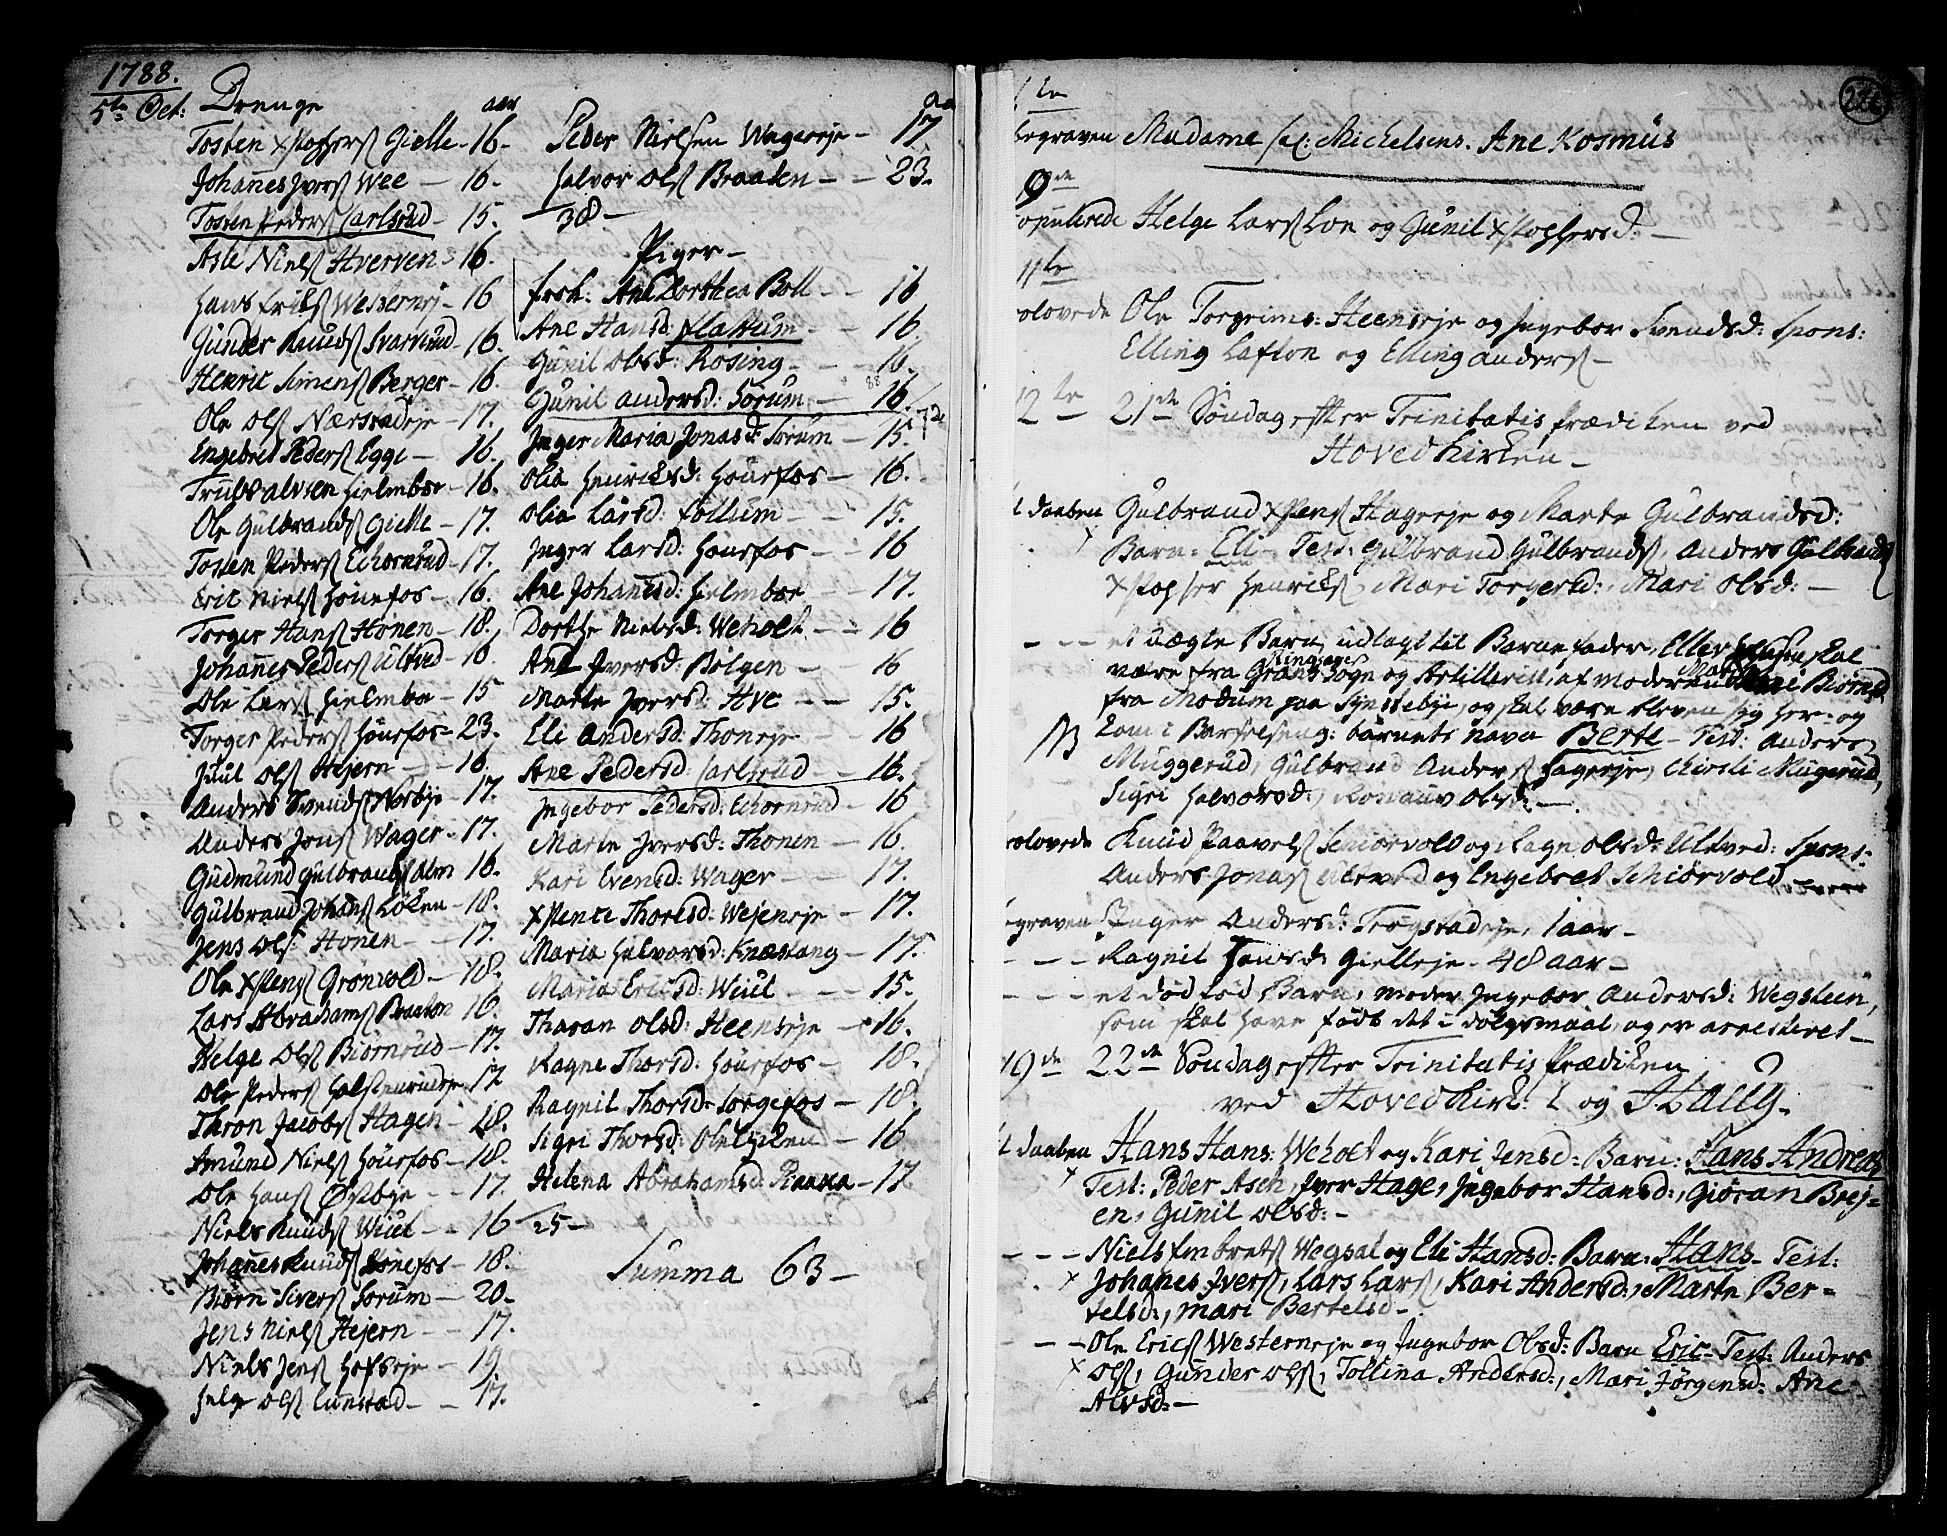 1788.
5te Oct: Drenge aar
Tosten Xstophers Gielle - 16 -
Johannes Ivers Wee - 16 -
Tosten Peders Carlsrud - 15.
Asle Niels Hverven - 16.
Hans Erics Westernej - 16
Gunder Knuds Svarverud - 16.
Henric Simens Berger - 16.
Ole Ols Nærstadeje - 17.
Engebret Peders Egge - 16.
Truls Alvsen Hielmboe - 16.
Ole Gulbrands Gielle - 17.
Tosten Peders Echornrud - 17.
Eric Niels Hönefos - 16.
Torger Hans Honen - 18.
Johannes Peders Ultved - 16.
Ole Lars Hielmboe - 15
Torger Peders Hönefos - 23.
Juul Ols Hejern - 16.
Anders Svends Norbye - 17.
Anders Jons Wager - 17.
Gudmund Gulbrands Alm 16.
Gulbrand Johans Löken - 18.
Jens Ols: Honen - 17.
Ole Xstens Grönvold - 18.
Lars Abrahams Braaten 16.
Helge Ols Biörnrud - 17.
Ole Peders 17
Thron Jacobs Hagen - 18.
Amund Niels Hönefos - 18.
Ole Hans Östbye - 17.
Niels Knuds Wiul - 16
Johannes Knuds Hönefos - 18.
Biörn Sivers Sorum - 20.
Jens Niels Hejern - 17.
Niels Jens Hofseje - 19.
Helge Ols Lunstad - 17.
Peder Nielsen Wagereje - 17
Halvor Ols Braaten - 23.
38 -
Piger -
Frøk: Ane Dorthea Boll - 16
Ane Hansd: Flattum - 16.
Gunil Olsd: Rösing - 16.
Gunil Andersd: Sorum - 16.
Inger Maria Jonasd: Sorum - 15.
Olia Henriksd: Hönefos - 16.
Olia Larsd: Follum - 15.
Inger Larsd: Hönefos - 16
Ane Johanesd: Hielmboe - 17.
Dorthe Nielsd: Weholt - 16
Ane Iversd: Bölgen - 16
Marte Iversd: Hve - 15.
Eli Andersd: Thoneje - 16
Ane Pedersd: Carlsrud - 16.
Ingebor Pedersd: Echornrud - 16
Marte Iversd: Thonen - 16.
Kari Evensd: Wager - 17.
Xstence Thoresd: Wejeneje - 17.
Maria Halvorsd: Knæstang - 17.
Maria Ericsd: Wiul - 15.
Tharan Olsd: Heenseje - 16.
Ragne Thorsd: Hönefos - 18.
Ragnil Thorsd: Sorgefos - 18.
Sigri Thorsd: - 16
Helena Abrahamsd: - 17
25 -
Summa 63 -
9de
Begraven Madame sal: Michelsens. Ane Kosmus
Copulerede Helge Lars Lon og Gunil Xstophersd: -
11te
Ole Torgrims: Heenseje og Ingebor Svendsd: Spons:
Elling Lafton og Elling Anders -
12te 21de Söndag effter Trinitatis Prædiken ved
Hoved Kirken -
Daaben Gulbrand Xstens Hagereje og Marte Gulbrandsd:
Barn: Eli - Test: Gulbrand Gulbrands, Anders Gulbrands
Xstopher Henriks, Mari Torgersd:, Mari Olsd: -
- - - et uægte Barn, udlagt til Barnefader, Ellev skal
være fra Grans Sogn og Artillerist, af moderen Mari Biörnsd
fra Modum paa og skal være bleven syg her og
kom i Barselseng: barnets navn Berte - Test: Anders
Muggerud, Gulbrand Anders Hagereje, Kirsti Mugerud,
Sigri Halvorsd:, Ronauv Olsd: -
Knud Paavels Schiörvold og Ragne Olsd: Ultved: Spons:
Anders Jonas Ultved og Engebret Schiörvold -
Begraven Inger Andersd: Trögstadeje, 1 aar -
- - - Ragnil Hansd: Gielleje - 48 aar -
- - - et död fød Barn, moder Ingebor Andersd: Wegstein,
som skal have födt det i dölgsmaal, og er arresteret -
19de 22de Söndag effter Trinitatis Prædiken
ved Hoved Kirk: og Haug.
Daaben Hans Hans: Weholt og Kari Jensd: Barn: Hans Andreas
Test: Peder Asch, Iver Hage, Ingebor Hansd:, Giöran Brej-
en, Gunil Olsd: -
- - - Niels Embrets Wegsal og Eli Hansd: Barn: Hans - Test:
Johanes Ivers, Lars Lars, Kari Andersd:, Marte Ber-
telsd:, Mari Bertelsd -
- - - Ole Erics Westerneje og Ingebor Olsd: Barn Eric - Test: Anders
Ols, Gunder Ols, Tollina Andersd:, Mari Jörgensd: Ane
Alvsd: -